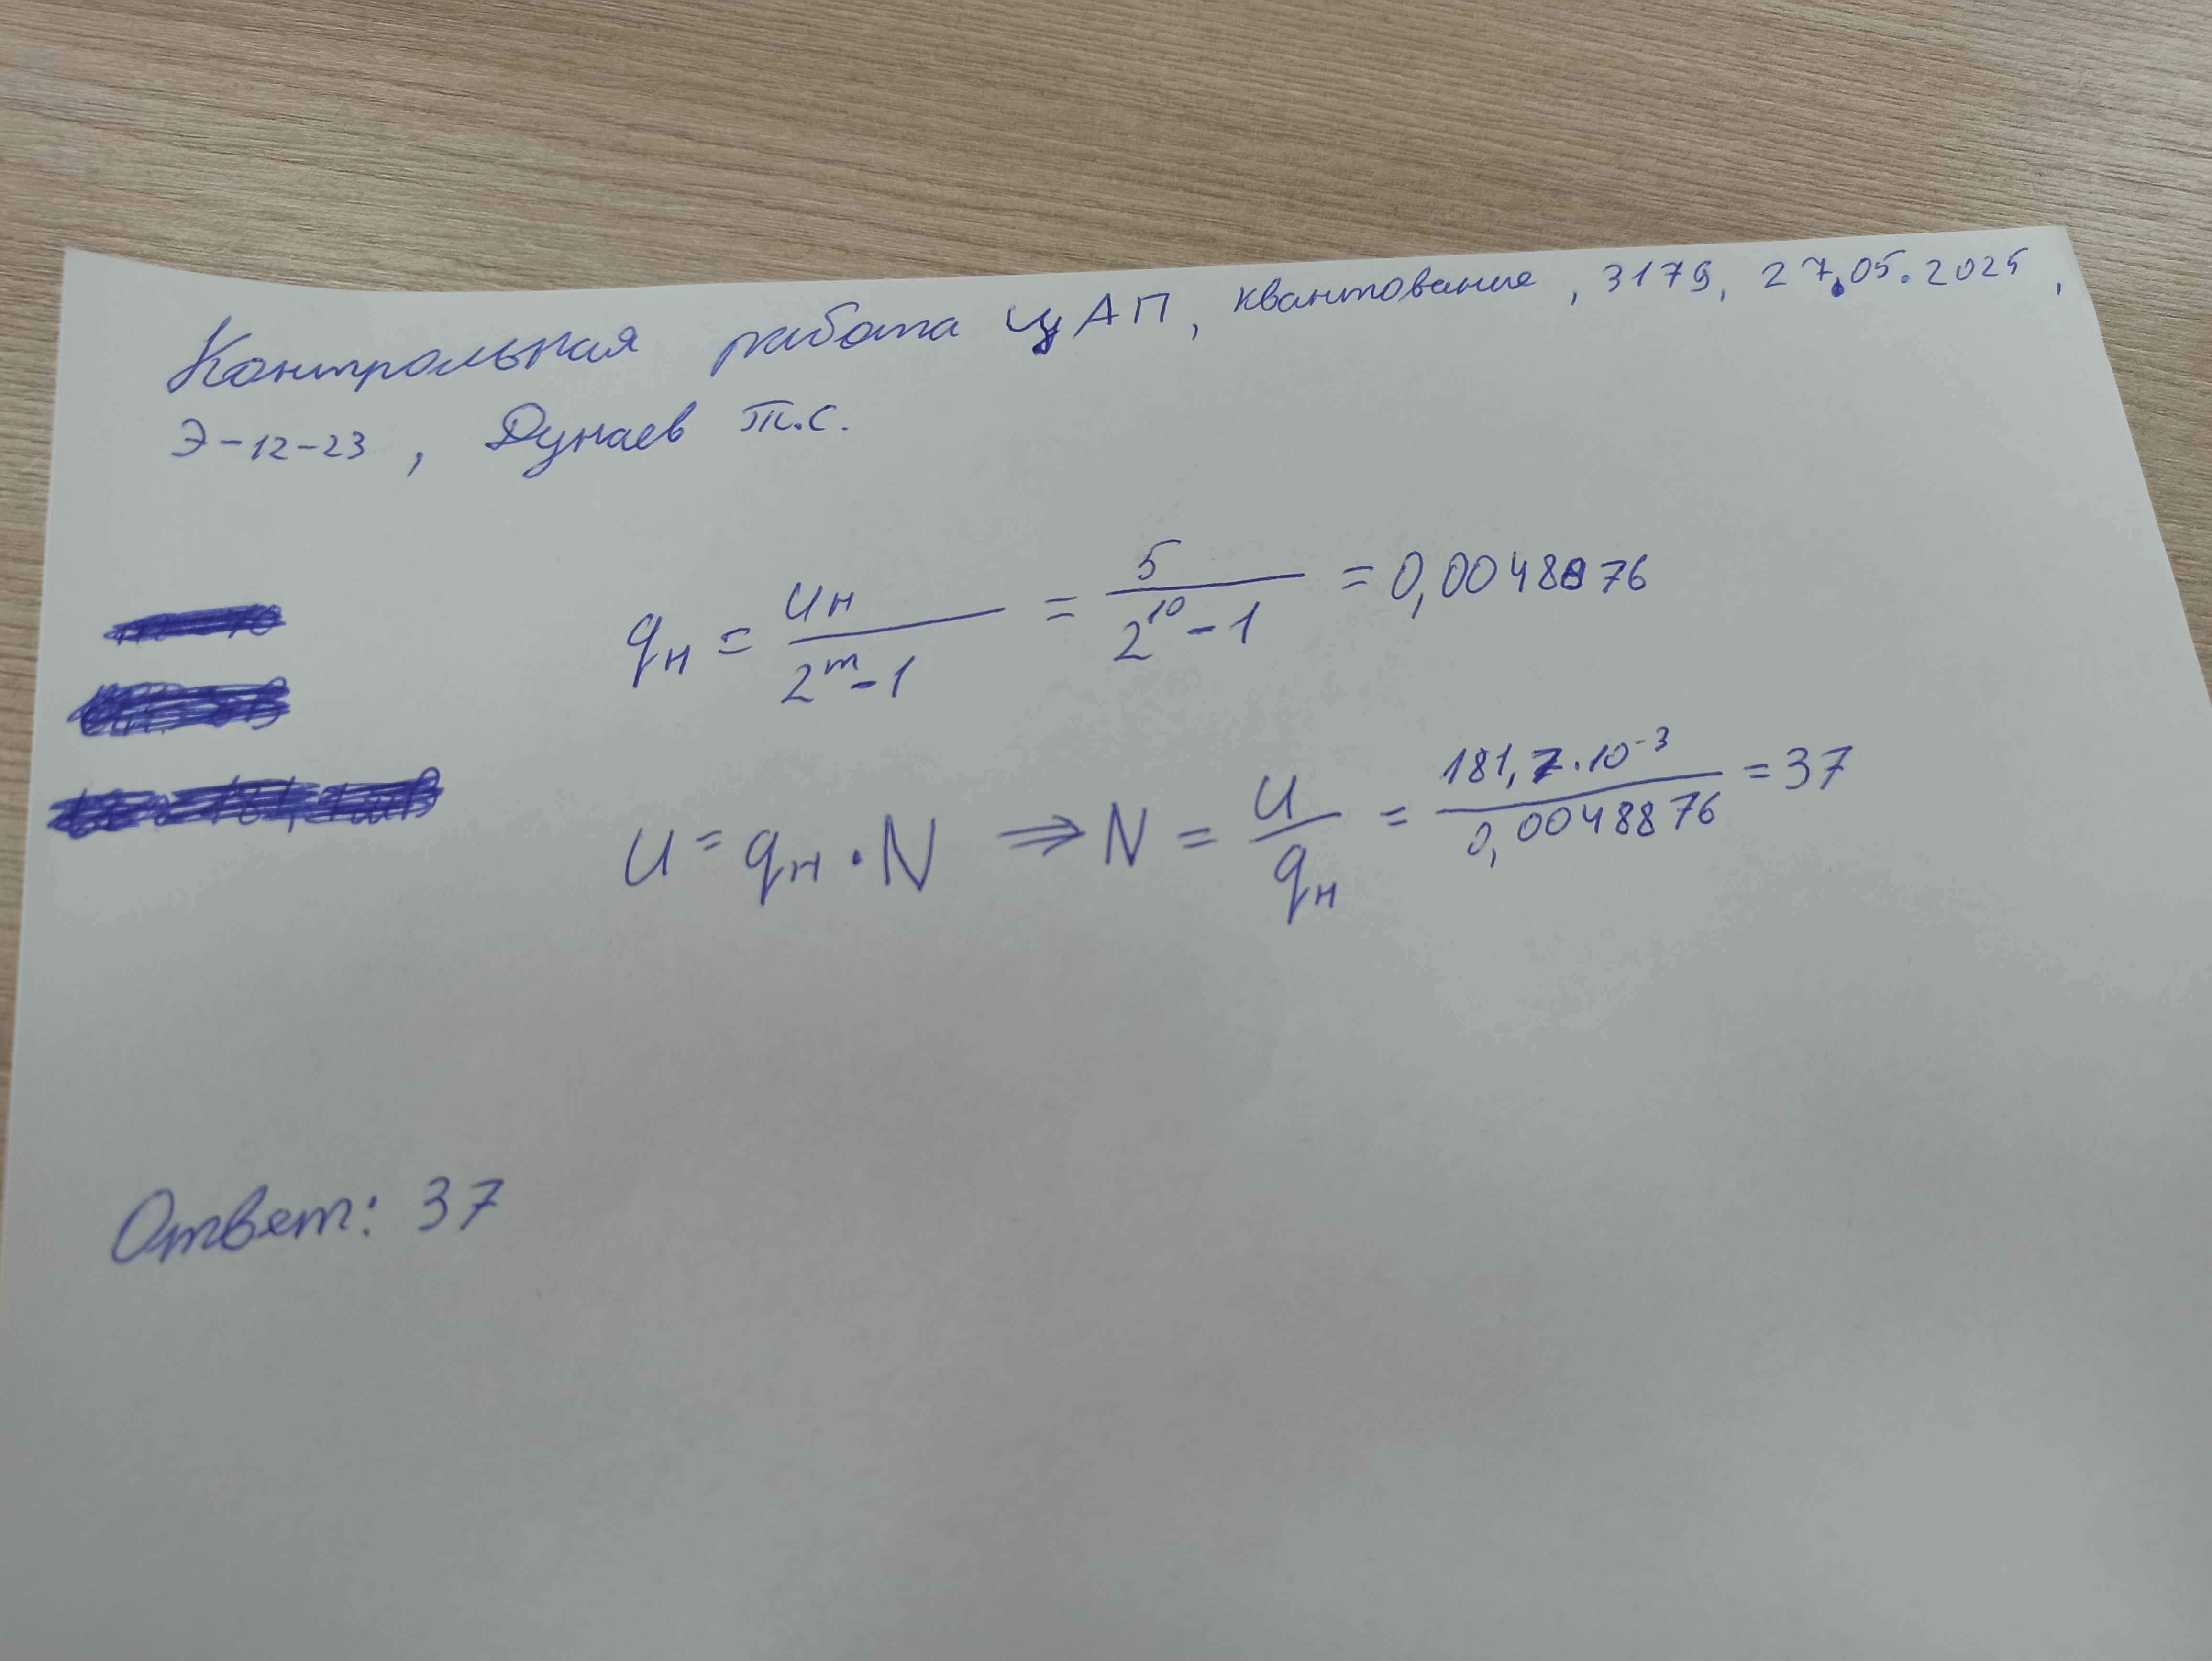 Контрольная работа ЦАП, квантование, 3179, 27.05.2025,
Э-12-23, Дунаев Т.С.
qн = Uн / (2^m - 1) = 5 / (2^10 - 1) = 0,0048876
U = qн · N ⇒ N = U / qн = 181,7 · 10^-3 / 0,0048876 = 37
Ответ: 37